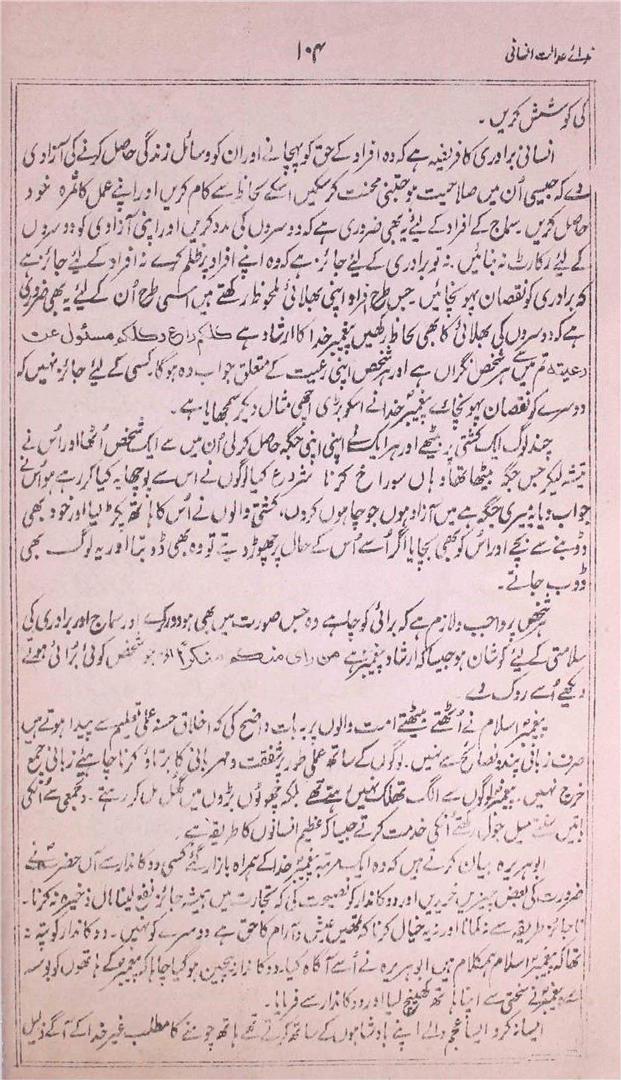 ندائے عدالت انسانی
۱۰۴
کی کوشش کریں۔
انسانی برادری کا فریضہ ہے کہ وہ افراد کے حق کو پہچانے اور ان کو وسائل زندگی حاصل کرنے کی آزادی
دے کہ جیسی اُن میں صلاحیت ہو جتنی محنت کر سکیں اسکے لحاظ سے کام کریں اور اپنے عمل کا ثمرہ خود
حاصل کریں۔ سماج کے افراد کے لیئے یہ بھی ضروری ہے کہ دوسروں کی مدد کریں اور اپنی آزادی کو دوسروں
کے لیئے رکاوٹ نہ بنائیں۔ نہ تو برادری کے لیئے جائز ہے کہ وہ اپنے افراد پر ظلم کرے نہ افراد کے لیئے جائز ہے
کہ برادری کو نقصان پہونچائیں۔ جس طرح افراد اپنی بھلائی ملحوظ رکھتے ہیں اسی طرح اُن کے لیئے یہ بھی ضروری
ہے کہ دوسروں کی بھلائی کا بھی لحاظ رکھیں پیغمبر خدا کا ارشاد ہے کلکم راع وکلکم مسئول عن
رعیتہ تم میں سے ہر شخص نگراں ہے اور ہر شخص اپنی رعیت کے متعلق جواب دہ ہوگا۔ کسی کے لیئے جائز نہیں کہ
دوسرے کو نقصان پہونچائے پیغمبر خدا نے اسکو بڑی اچھی مثال دیکر سمجھایا ہے۔
چند لوگ ایک کشتی پر بیٹھے اور ہر ایک نے اپنی اپنی جگہ حاصل کر لی اُن میں سے ایک شخص اُٹھا اور اُس نے
تیشہ لیکر جس جگہ بیٹھا تھا وہاں سوراخ کرنا شروع کیا لوگوں نے اس سے پوچھا یہ کیا کر رہے ہو اُس نے
جواب دیا یہ میری جگہ ہے میں آزاد ہوں جو چاہوں کروں، کشتی والوں نے اُس کا ہاتھ پکڑ لیا اور خود بھی
ڈوبنے سے بچے اور اس کو بھی بچایا اگر اُسے اُس کے حال پر چھوڑ دیتے تو وہ بھی ڈوبتا اور یہ لوگ بھی
ڈوب جاتے۔
ہر شخص پر واجب و لازم ہے کہ برائی کو چاہے وہ جس صورت میں بھی ہو دور کرے اور سماج اور برادری کی
سلامتی کے لیئے کوشان ہو جیسا کہ ارشاد پیغمبر ہے من رای منکم منکرا جو شخص کوئی بُرائی ہوتے
دیکھے اُسے روک دے۔
پیغمبر اسلام نے اُٹھتے بیٹھتے امت والوں پر یہ بات واضح کی کہ اخلاق حسنہ عملی تعلیم سے پیدا ہوتے ہیں
صرف زبانی پند و نصائح سے نہیں۔ لوگوں کے ساتھ عملی طور پر شفقت و مہربانی کا برتاؤ کرنا چاہیئے زبانی جمع
خرچ نہیں۔ پیغمبر لوگوں سے الگ تھلگ نہیں رہتے تھے بلکہ چھوٹوں بڑوں میں گھل مل کر رہتے۔ دلجمعی سے اُنکی
باتیں سنتے میل جول رکھتے اُنکی خدمت کرتے جیسا کہ عظیم انسانوں کا طریقہ ہے۔
ابو ہریرہ بیان کرتے ہیں کہ وہ ایک مرتبہ پیغمبر خدا کے ہمراہ بازار گئے کسی دوکاندار سے آں حضرت نے
ضرورت کی بعض چیزیں خریدیں اور دوکاندار کو نصیحت کی کہ تجارت میں ہمیشہ جائز نفع لینا مال ذخیرہ نہ کرنا۔
ناجائز طریقہ سے نہ کمانا اور نہ یہ خیال کرنا کہ تمھیں عیش و آرام کا حق ہے دوسرے کو نہیں۔ دوکاندار کو پتہ نہ
تھا کہ پیغمبر اسلام ہمکلام ہیں ابو ہریرہ نے اُسے آگاہ کیا۔ دوکاندار بیچین ہو گیا چاہا کہ پیغمبر کے ہاتھوں کو بوسہ
دے پیغمبر نے سختی سے اپنا ہاتھ کھینچ لیا اور دوکاندار سے فرمایا۔
ایسا نہ کرو ایسا عجم والے اپنے بادشاہوں کے ساتھ کرتے تھے ہاتھ چومنے کا مطلب غیر خدا کے آگے ذلیل